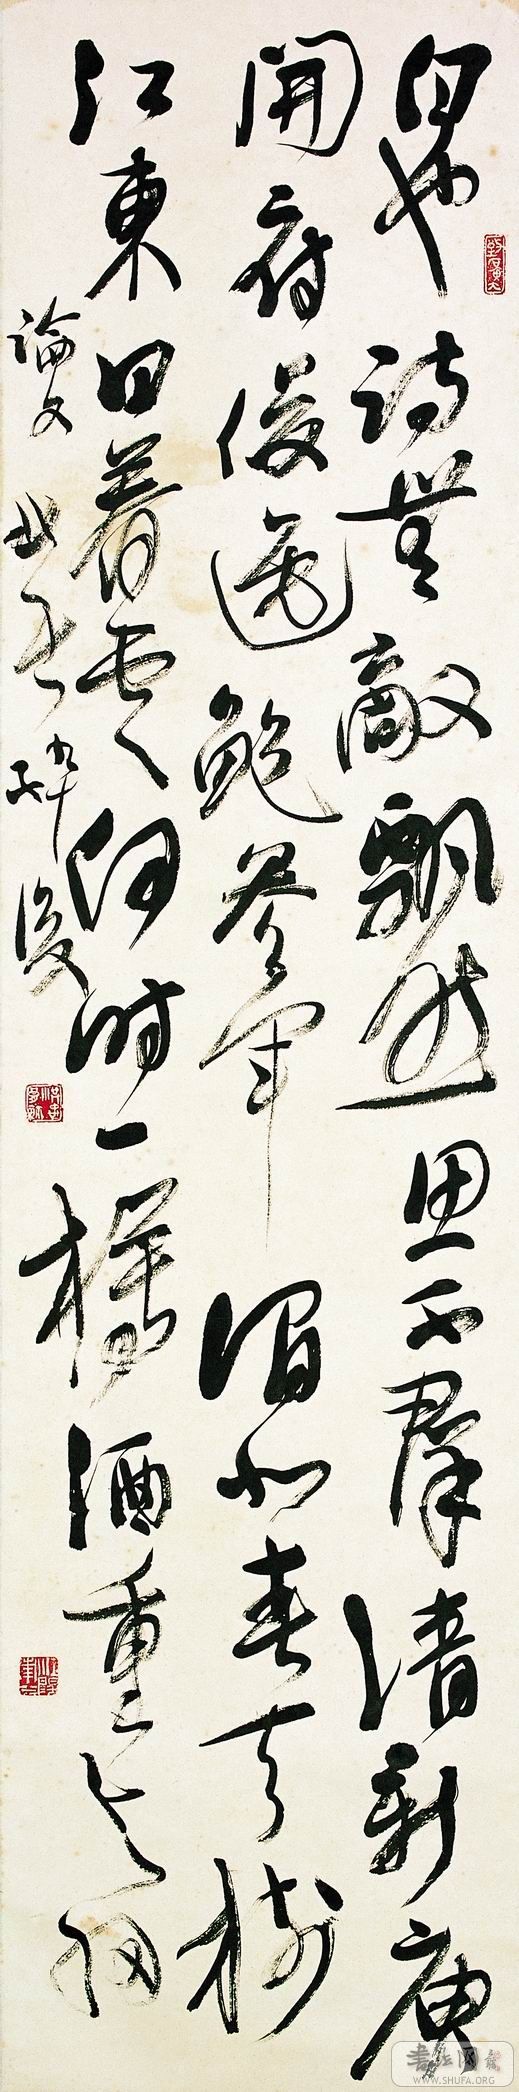 白也詩無敵飄然思不群清新庾
開府俊逸鮑參軍渭北春天樹
江東日暮雲何時一樽酒重與細
論文
书法网
WWW.SHUFA.ORG